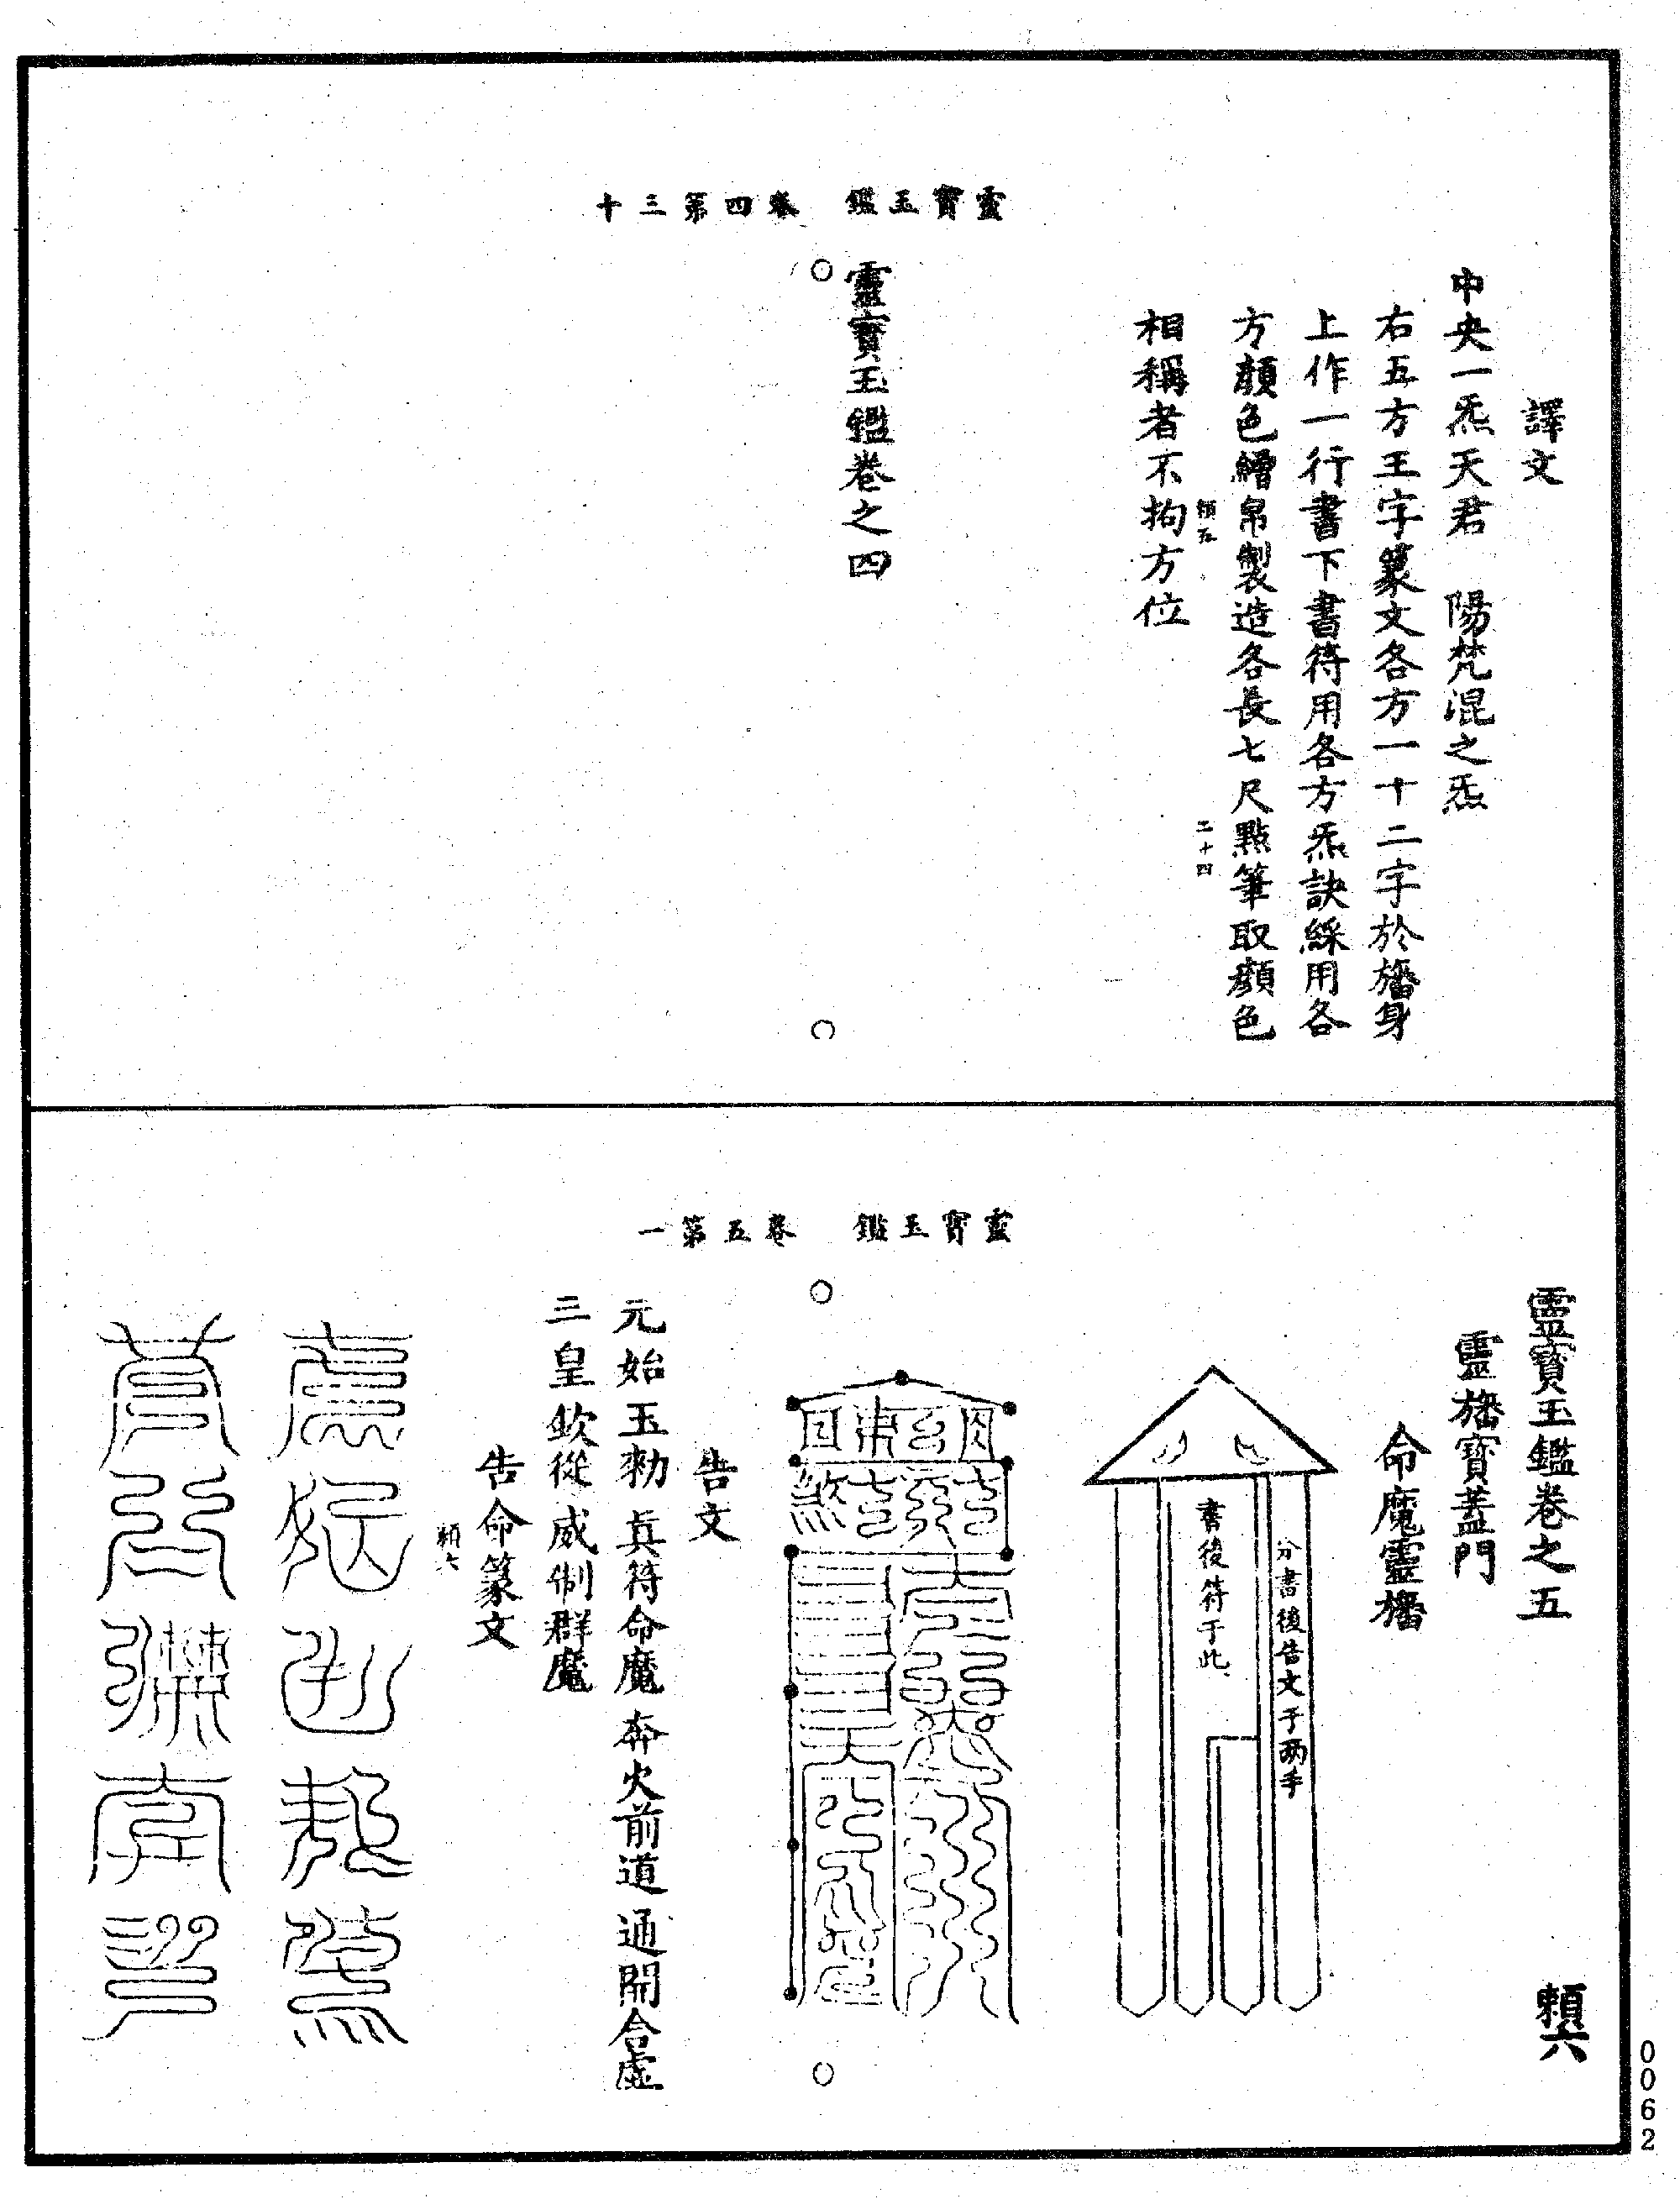 靈寶玉鑑　卷四第三十
譯文
中央一炁天君　陽梵混之炁
右五方王字篆文各方一十二字於旛身
上作一行書下書符用各方炁訣綵用各
方顏色繒帛製造各長七尺點筆取顏色
賴五　二十四
相稱者不拘方位
靈寶玉鑑卷之四
靈寶玉鑑　卷五第一
靈寶玉鑑卷之五
賴六
靈旛寶蓋門
命魔靈旛
分書後告文于兩手
書後符于此
告文
元始玉勑　眞符命魔　奔火前道　通開合虛
三皇欽從　威制群魔
告命篆文
賴六
0062